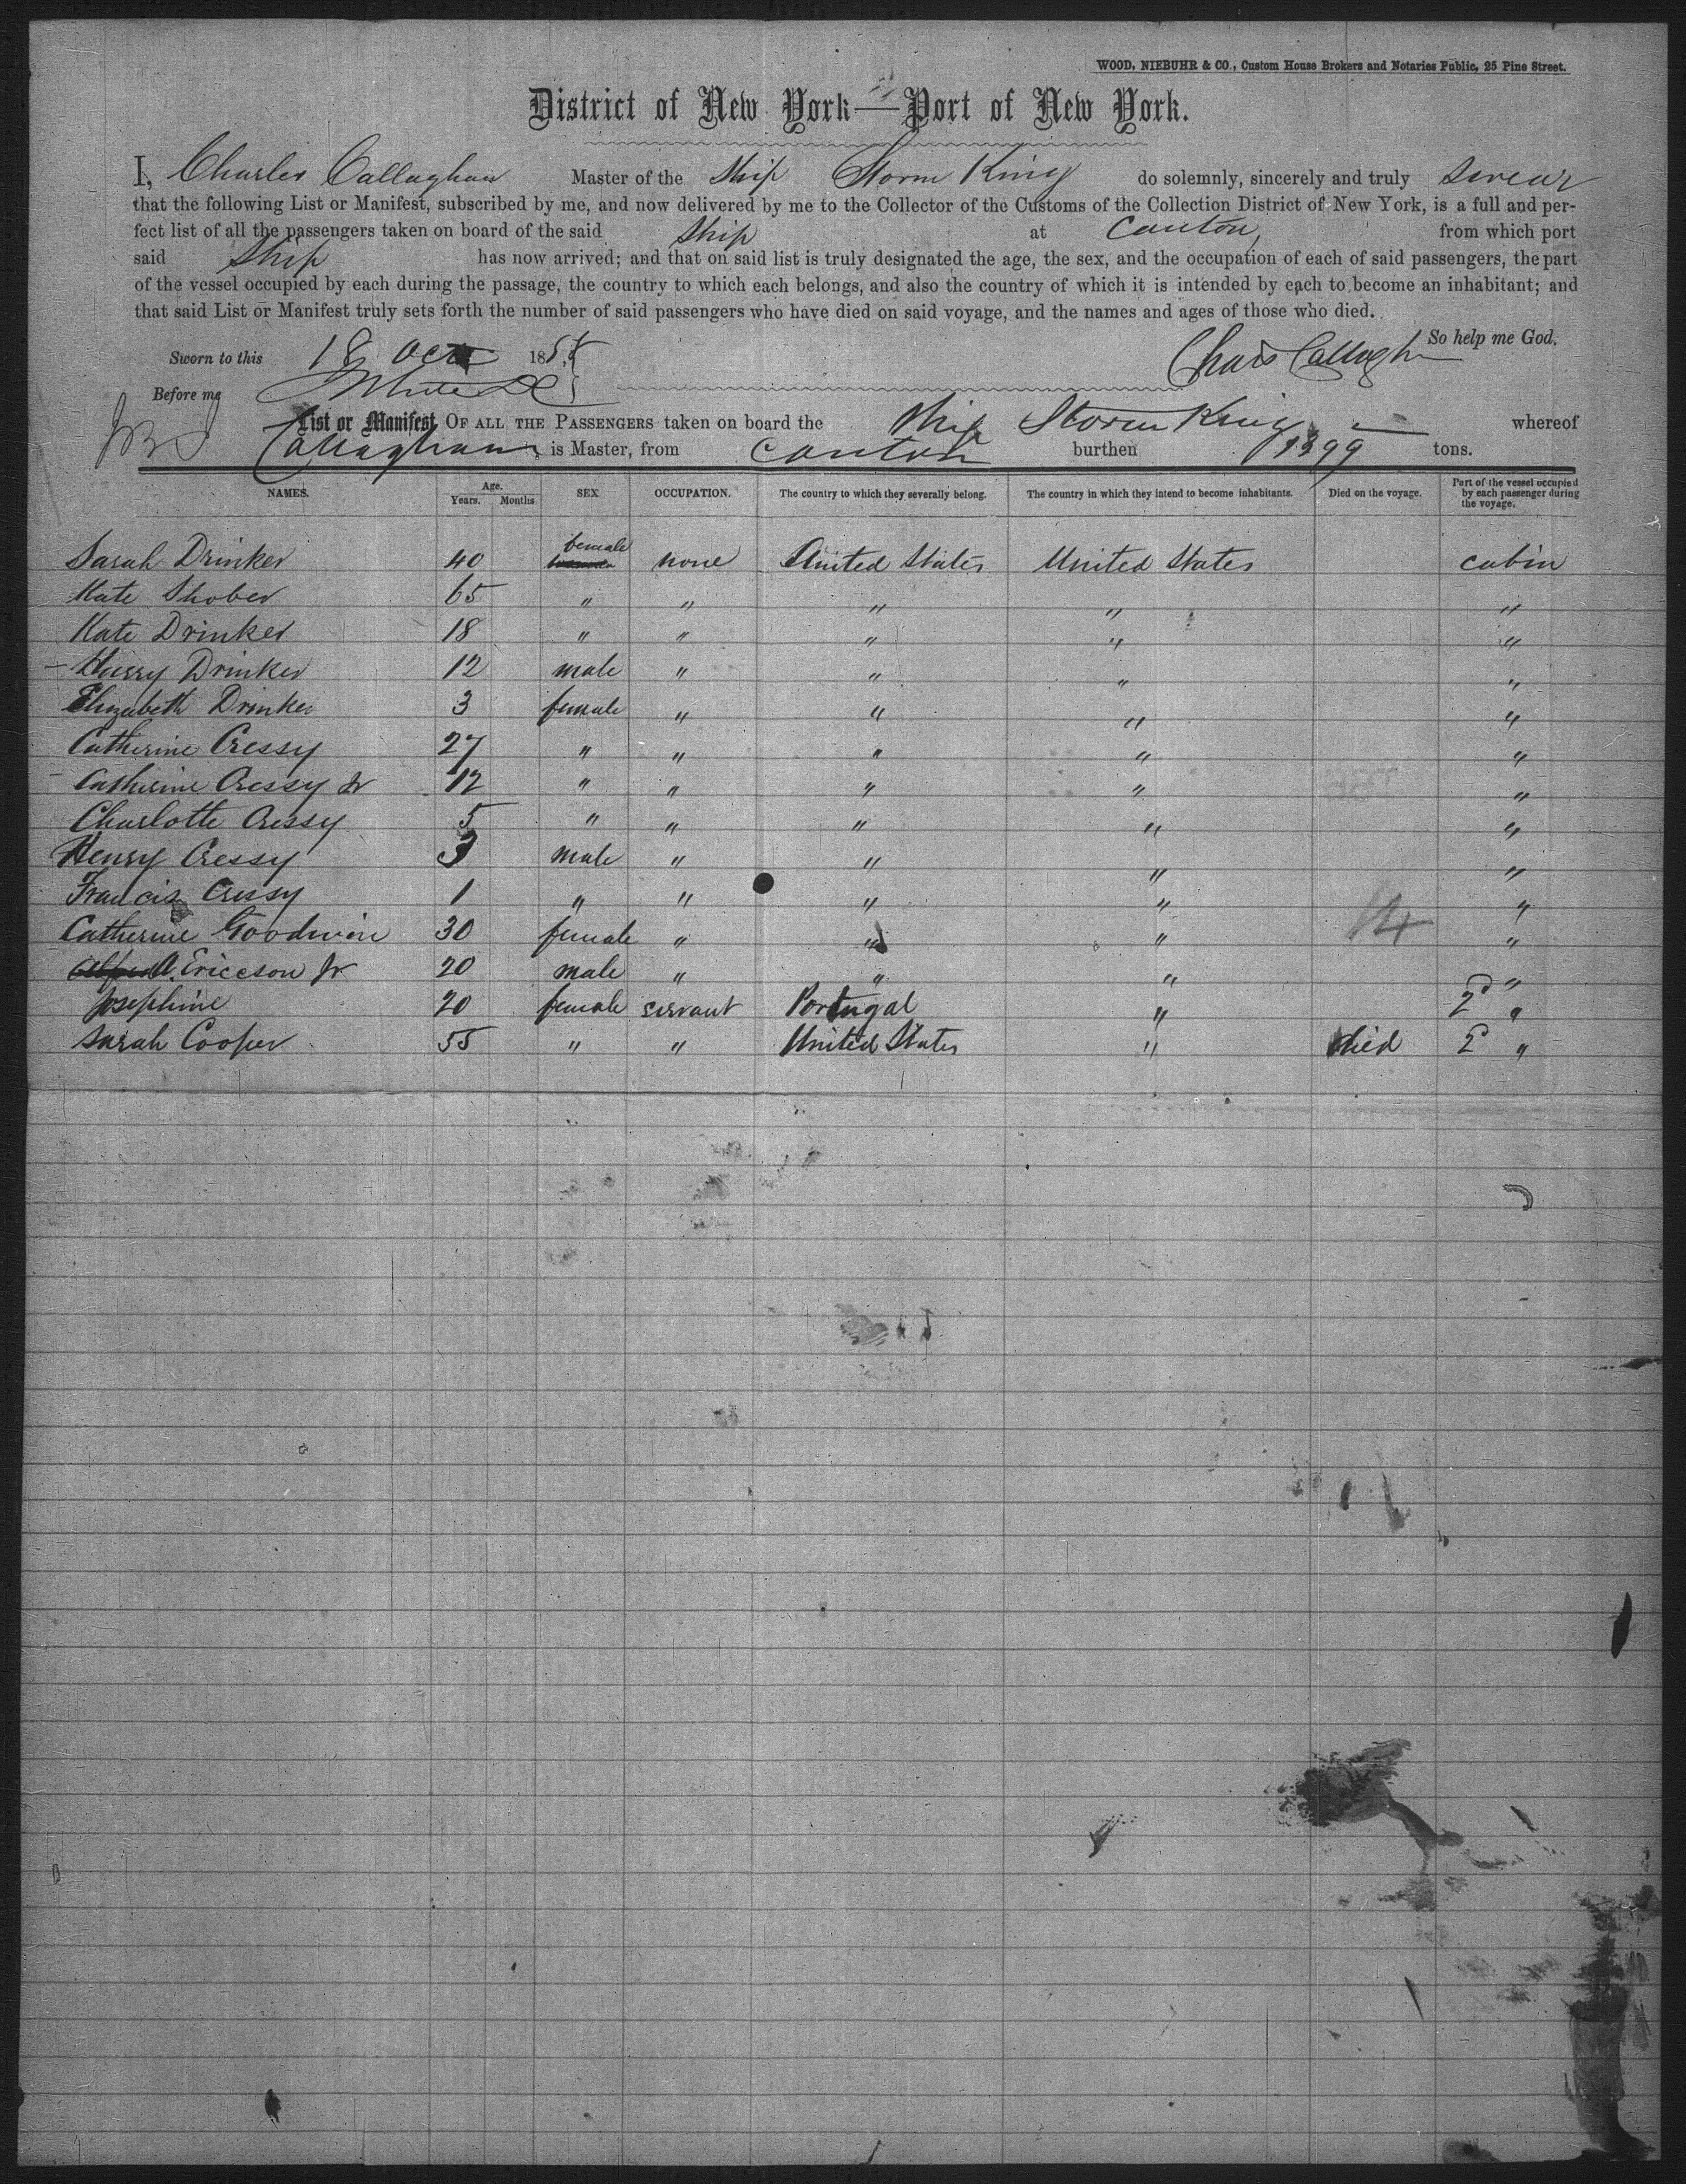 WOOD, NIEBUHR & CO., Custom House Brokers and Notaries Public, 25 Pine Street.
District of New York—Port of New York.
I, Charles Callaghan Master of the Ship Storm King do solemnly, sincerely and truly swear
that the following List or Manifest, subscribed by me, and now delivered by me to the Collector of the Customs of the Collection District of New York, is a full and per-
fect list of all the passengers taken on board of the said Ship at Canton, from which port
said Ship has now arrived; and that on said list is truly designated the age, the sex, and the occupation of each of said passengers, the part
of the vessel occupied by each during the passage, the country to which each belongs, and also the country of which it is intended by each to become an inhabitant; and
that said List or Manifest truly sets forth the number of said passengers who have died on said voyage, and the names and ages of those who died.
So help me God,
Sworn to this 18 Oct 185 Chas Callaghan
Before me
List or Manifest OF ALL THE PASSENGERS taken on board the Ship Storm King whereof
Callaghan is Master, from Canton burthen 1399 tons.
NAMES. Age. Years. Months SEX. OCCUPATION. The country to which they severally belong. The country in which they intend to become inhabitants. Died on the voyage. Part of the vessel occupied by each passenger during the voyage.
Sarah Drinker 40 female none United States United States cabin
Kate Shober 65 " " " " "
Kate Drinker 18 " " " " "
Harry Drinker 12 male " " " "
Elizabeth Drinker 3 female " " " "
Catherine Cressy 27 " " " " "
Catherine Cressy Jr 12 " " " " "
Charlotte Cressy 5 " " " " "
Henry Cressy 3 male " " " "
Francis Cressy 1 " " " " "
Catherine Goodwin 30 female " " " 14 "
A. Ericcson Jr 20 male " " " "
Josephine 20 female servant Portugal " 2d "
Sarah Cooper 55 " " United States " died 2d "